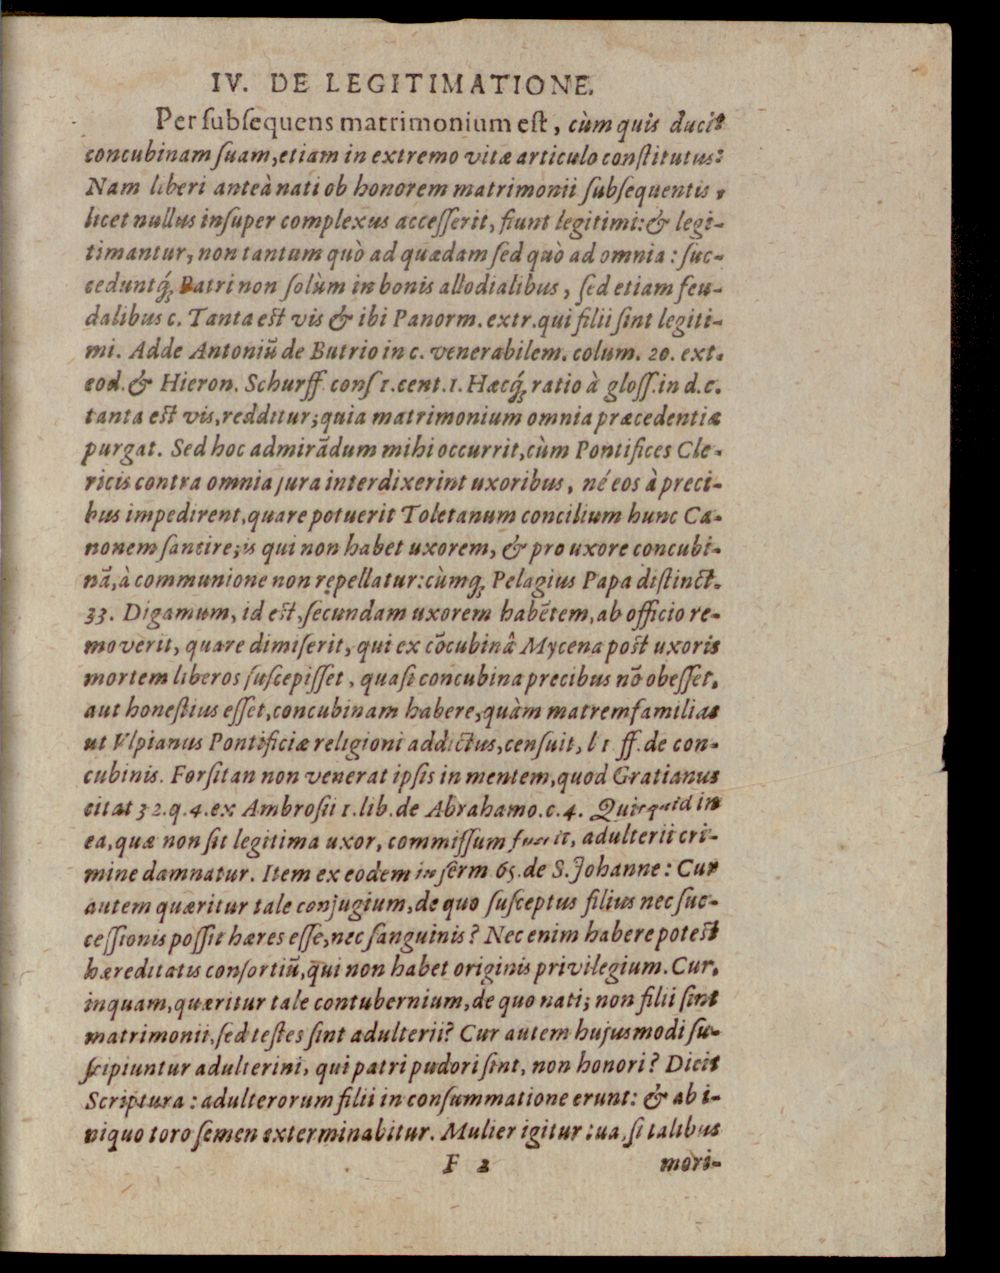 IV. DE LEGITIMATIONE.
Per ſubſequens matrimonium eſt, cùm quis ducit
concubinam ſuam, etiam in extremo vitæ articulo conſtitutus:
Nam liberi anteà nati ob honorem matrimonii ſubſequentis,
licet nullus inſuper complexus acceſſerit, fiunt legitimi: & legi-
timantur, non tantum quò ad quædam ſed quò ad omnia: ſuc-
ceduntq́; Patri non ſolùm in bonis allodialibus, ſed etiam feu-
dalibus c. Tanta eſt vis & ibi Panorm. extr. qui filii ſint legiti-
mi. Adde Antoniũ de Butrio in c. venerabilem. colum. 20. ext.
eod. & Hieron. Schurff. conſ 1. cent. 1. Hæcq́; ratio à gloſſ. in d. c.
tanta eſt vis, redditur; quia matrimonium omnia præcedentia
purgat. Sed hoc admirãdum mihi occurrit, cùm Pontifices Cle-
ricis contra omnia jura interdixerint uxoribus, né eos à preci-
bus impedirent, quare potuerit Toletanum concilium hunc Ca-
nonem ſancire; is qui non habet uxorem, & pro uxore concubi-
nã, à communione non repellatur: cùmq; Pelagius Papa diſtinct.
33. Digamum, id eſt, ſecundam uxorem habẽtem, ab officio re-
moverit, quare dimiſerit, qui ex cõcubinâ Mycena poſt uxoris
mortem liberos ſuſcepiſſet, quaſi concubina precibus nõ obeſſet,
aut honeſtius eſſet, concubinam habere, quàm matremfamilias
ut Vlpianus Pontificiæ religioni addictus, cenſuit, l 1 ff. de con-
cubinis. Forſitan non venerat ipſis in mentem, quod Gratianus
citat 32. q. 4. ex Ambroſii 1. lib. de Abrahamo. c. 4. Quicquid in
ea, quæ non ſit legitima uxor, commiſſum fuerit, adulterii cri-
mine damnatur. Item ex eodem in ſerm 65. de S. Johanne: Cur
autem quæritur tale conjugium, de quo ſuſceptus filius nec ſuc-
ceſſionis poſſit hæres eſſe, nec ſanguinis? Nec enim habere poteſt
hæreditatis conſortiũ, qui non habet originis privilegium. Cur,
inquam, quæritur tale contubernium, de quo nati; non filii ſint
matrimonii, ſed teſtes ſint adulterii? Cur autem hujusmodi ſu-
ſcipiuntur adulterini, qui patri pudori ſint, non honori? Dicit
Scriptura: adulterorum filii in conſummatione erunt: & ab i-
niquo toro ſemen exterminabitur. Mulier igitur tua, ſi talibus
F 2 mori-